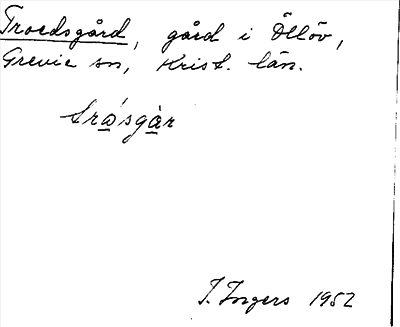 Troedsgård, gård i Öllöv,
Grevie sn, Krist. län.
tra̲ʹsgå̲r
I. Ingers 1952